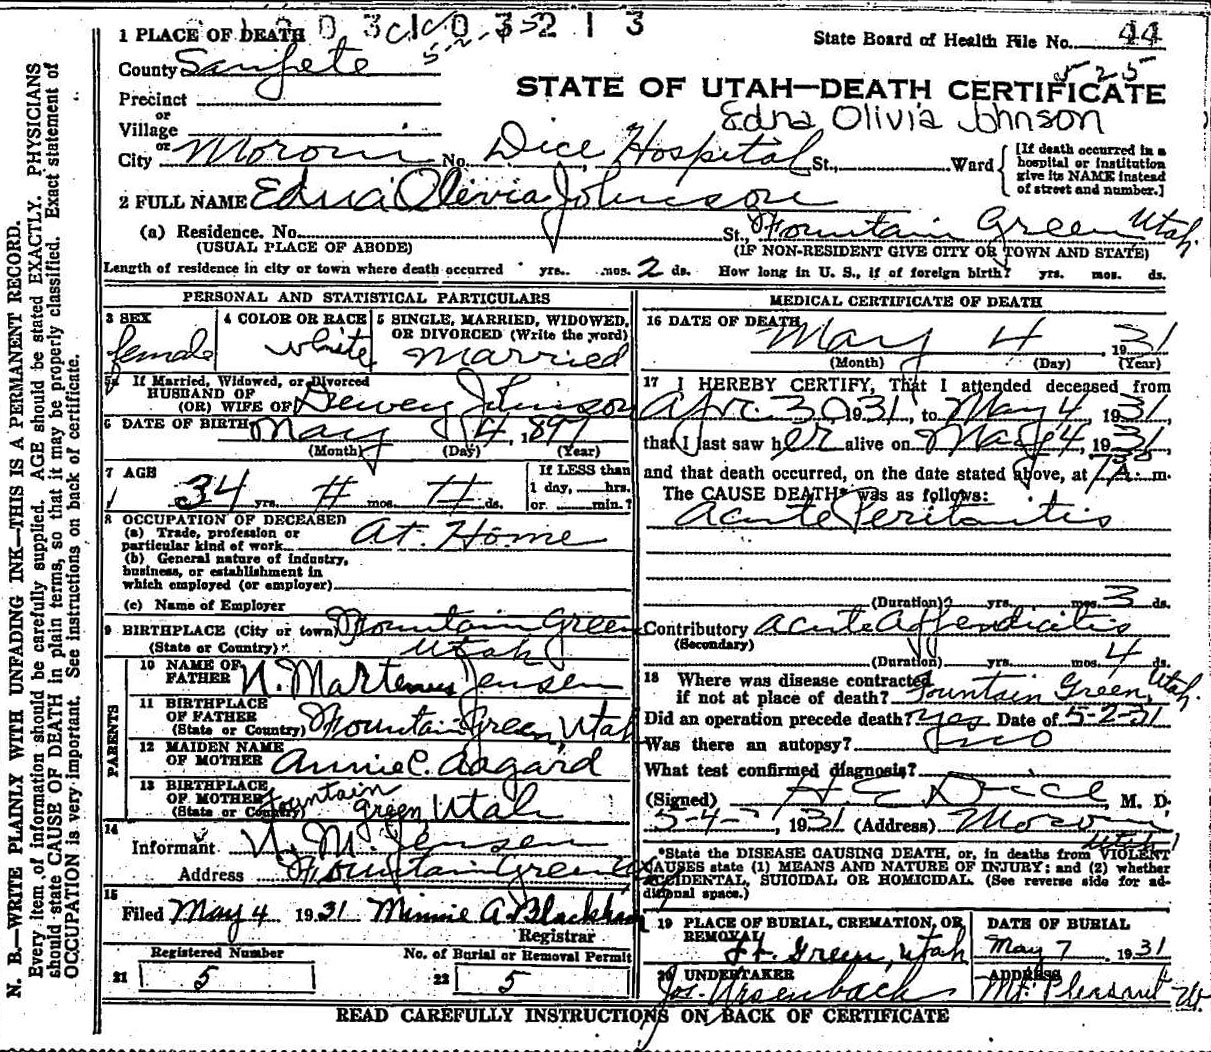 1 PLACE OF DEATH
State Board of Health File No. 44
525
County Sanpete
STATE OF UTAH—DEATH CERTIFICATE
Precinct
or
Village
Edna Olivia Johnson
or
City Moroni No. Dice Hospital St., Ward
[If death occurred in a hospital or institution give its NAME instead of street and number.]
2 FULL NAME Edna Olivia Johnson
(a) Residence. No. St., Fountain Green Utah
(USUAL PLACE OF ABODE) (IF NON-RESIDENT GIVE CITY OR TOWN AND STATE)
Length of residence in city or town where death occurred yrs. mos. 2 ds. How long in U. S., if of foreign birth? yrs. mos. ds.
PERSONAL AND STATISTICAL PARTICULARS
3 SEX
female
4 COLOR OR RACE
white
5 SINGLE, MARRIED, WIDOWED,
OR DIVORCED (Write the word)
Married
5a If Married, Widowed, or Divorced
HUSBAND OF
(OR) WIFE OF Dewey Johnson
6 DATE OF BIRTH May 4, 1897
(Month) (Day) (Year)
7 AGE
34 yrs. mos. ds.
If LESS than
1 day, hrs.
or min.?
8 OCCUPATION OF DECEASED
(a) Trade, profession or
particular kind of work At Home
(b) General nature of industry,
business, or establishment in
which employed (or employer)
(c) Name of Employer
9 BIRTHPLACE (City or town) Fountain Green
(State or Country) Utah
PARENTS
10 NAME OF
FATHER N. Martenus Jensen
11 BIRTHPLACE
OF FATHER
(State or Country) Fountain Green, Utah
12 MAIDEN NAME
OF MOTHER Annie C. Aagard
13 BIRTHPLACE
OF MOTHER Fountain
(State or Country) Green, Utah
14
Informant N. M. Jensen
Address Fountain Green
15
Filed May 4 1931 Minnie A. Blackham
Registrar
Registered Number
21 5
No. of Burial or Removal Permit
22 5
MEDICAL CERTIFICATE OF DEATH
16 DATE OF DEATH
May 4, 1931
(Month) (Day) (Year)
17 I HEREBY CERTIFY, That I attended deceased from
Apr. 30, 1931, to May 4, 1931
that I last saw her alive on May 4, 1931
and that death occurred, on the date stated above, at m.
The CAUSE DEATH* was as follows:
Acute Peritonitis
(Duration) yrs. mos. 3 ds.
Contributory Acute Appendicitis
(Secondary)
(Duration) yrs. mos. 4 ds.
18 Where was disease contracted
if not at place of death? Fountain Green, Utah.
Did an operation precede death? yes Date of 5-2-31
Was there an autopsy? no
What test confirmed diagnosis?
(Signed) H E Dice, M. D.
5-4-, 1931 (Address) Moroni
Utah
*State the DISEASE CAUSING DEATH, or, in deaths from VIOLENT
CAUSES state (1) MEANS AND NATURE OF INJURY; and (2) whether
ACCIDENTAL, SUICIDAL OR HOMICIDAL. (See reverse side for ad-
ditional space.)
19 PLACE OF BURIAL, CREMATION, OR
REMOVAL
Ft. Green, Utah
DATE OF BURIAL
May 7 1931
20 UNDERTAKER
Jos. Ursenbach
ADDRESS
Mt. Pleasant Ut.
READ CAREFULLY INSTRUCTIONS ON BACK OF CERTIFICATE
N. B.—WRITE PLAINLY WITH UNFADING INK—THIS IS A PERMANENT RECORD.
Every item of information should be carefully supplied. AGE should be stated EXACTLY. PHYSICIANS
should state CAUSE OF DEATH in plain terms, so that it may be properly classified. Exact statement of
OCCUPATION is very important. See instructions on back of certificate.